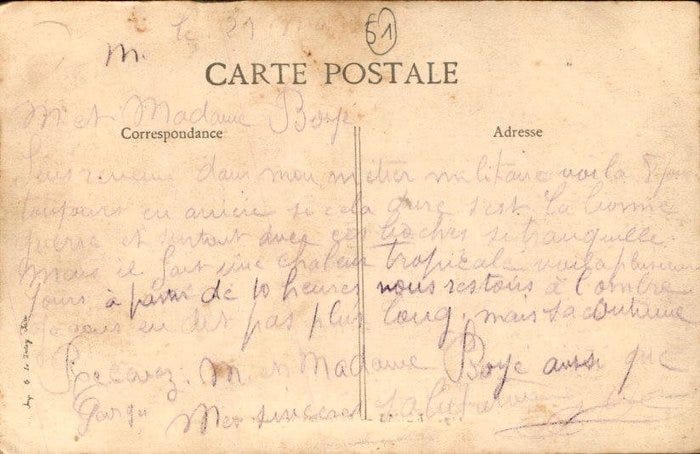 51
le 21
M.
CARTE POSTALE
M. et Madame Boyé
Correspondance
Adresse
revenu dans mon métier militaire voila 8 jours
toujours en arrière si cela dure s'est la bonne
guerre et surtout avec ces boches si tranquille.
Mais il fait une chaleur tropicale voila plusieurs
jours à partir de 10 heures nous restons à l'ombre
vous en dit pas plus long, mais sa continue
Recevez. M. et Madame Boyé aussi que
Mes sincères salutations